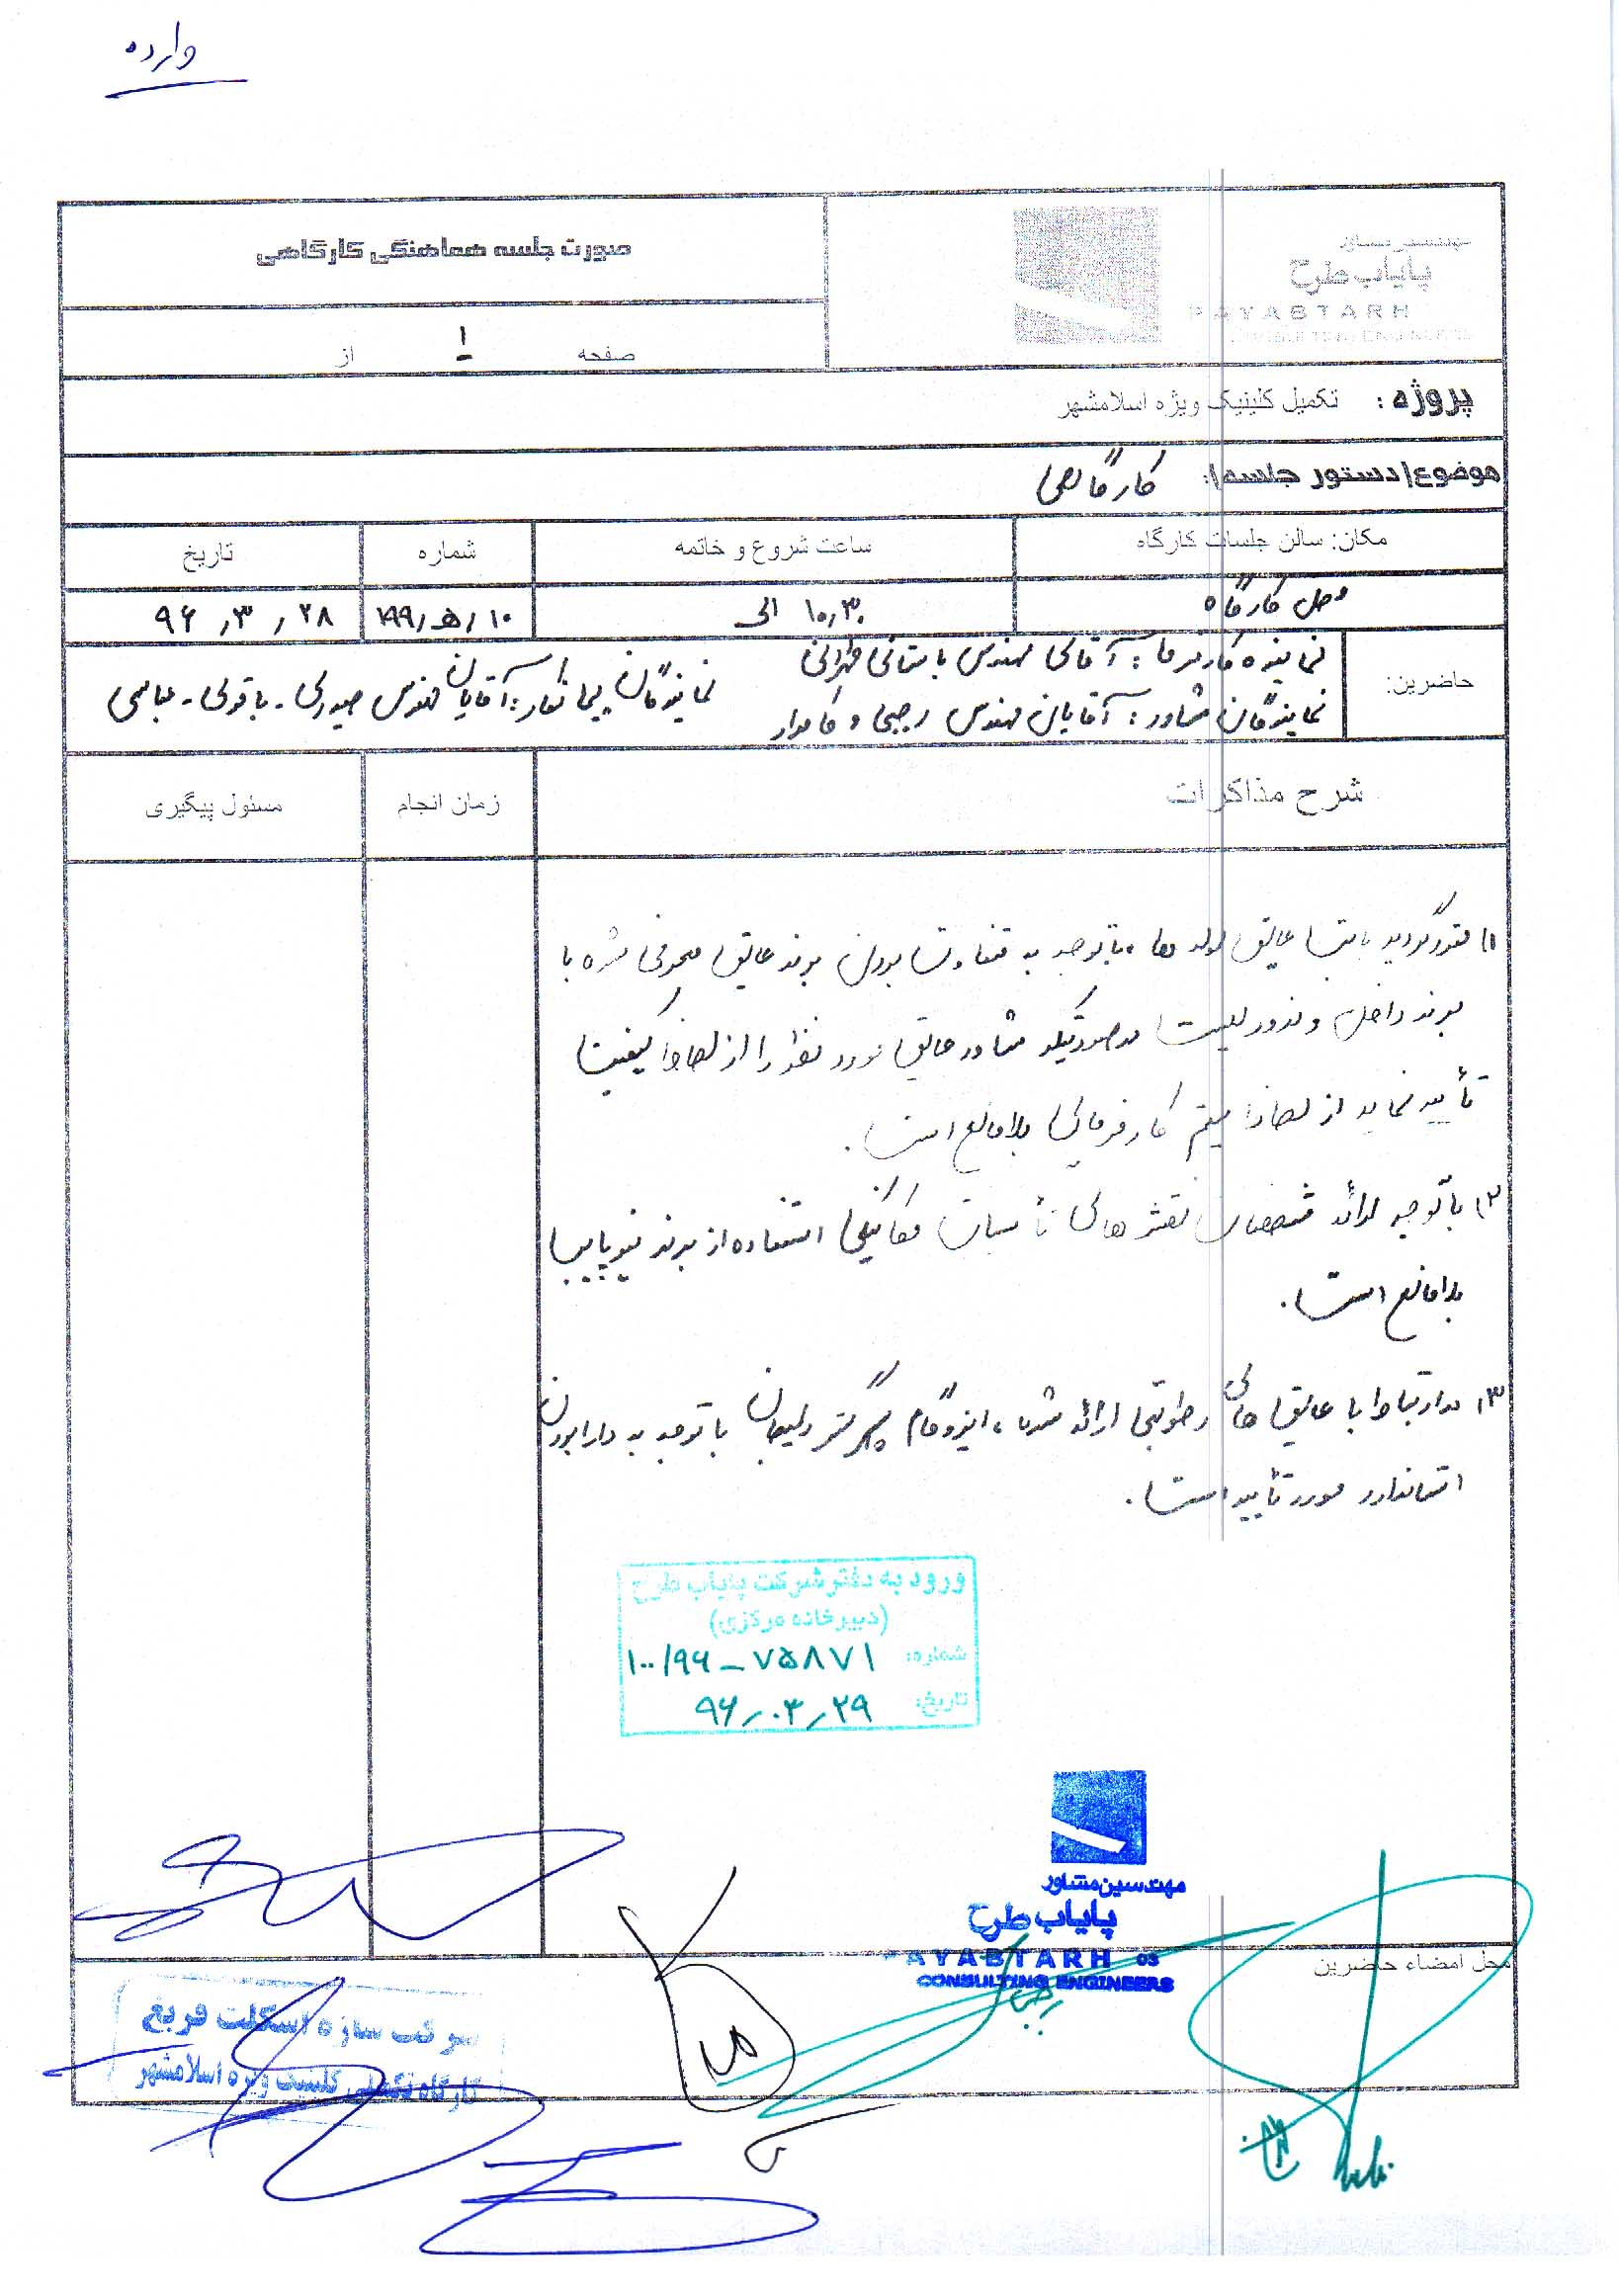 وارده
مهندسین مشاور
پایاب طرح
PAYABTARH
CONSULTING ENGINEERS
صورت جلسه هماهنگی کارگاهی
صفحه ۱ از
پروژه : تکمیل کلینیک ویژه اسلامشهر
موضوع(دستور جلسه): کارگاهی
مکان: سالن جلسات کارگاه
ساعت شروع و خاتمه
شماره
تاریخ
محل کارگاه
۱۰٫۳۰ الی
۹۶٫۳٫۲۸
حاضرین:
نماینده کارفرما : آقای مهندس باستانی طهرانی
نمایندگان مشاور : آقایان مهندس رجبی و کامدار
نمایندگان پیمانکار : آقایان مهندس حیدری - باقری - عباسی
شرح مذاکرات
زمان انجام
مسئول پیگیری
۱) مقرر گردید بابت عایق لوله ها ، با توجه به متفاوت بودن برند عایق معرفی شده با
برند داخل وندور لیست در صورتیکه مشاور عایق مورد نظر را از لحاظ کیفیت
تأیید نماید از لحاظ تیم کارفرمائی بلامانع است .
۲) با توجه ارائه مشخصات نقشه های تأسیسات مکانیکی استفاده از برند نیوپایپ
بلامانع است .
۳) در ارتباط با عایق های رطوبتی ارائه شده ، ایزوگام گستر دلیجان با توجه به دارا بودن
استاندارد مورد تأیید است .
ورود به دفتر شرکت پایاب طرح
(دبیرخانه مرکزی)
شماره: ۱۰۰/۹۶-۷۵۸۷۱
تاریخ: ۹۶٫۰۳٫۲۹
مهندسین مشاور
پایاب طرح
PAYABTARH 03
CONSULTING ENGINEERS
محل امضاء حاضرین
شرکت سازه اسکلت
کارگاه تکمیلی کلینیک ویژه اسلامشهر